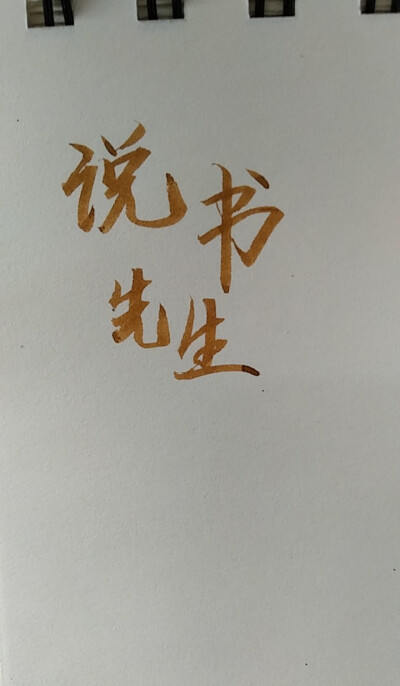 说书
先生